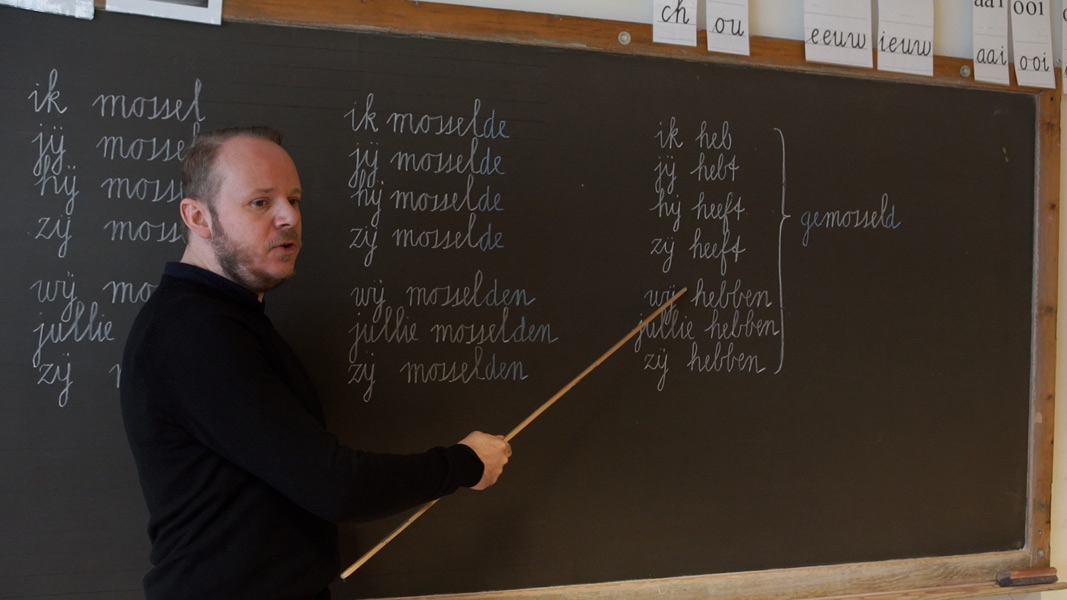 ch
ou
eeuw
ieuw
aai
ooi
aai
ooi
ik mossel
jij
hij
zij
wij
jullie
zij
ik mosselde
jij mosselde
hij mosselde
zij mosselde
wij mosselden
jullie mosselden
zij mosselden
ik heb
jij hebt
hij heeft
zij heeft
wij hebben
jullie hebben
zij hebben
gemosseld